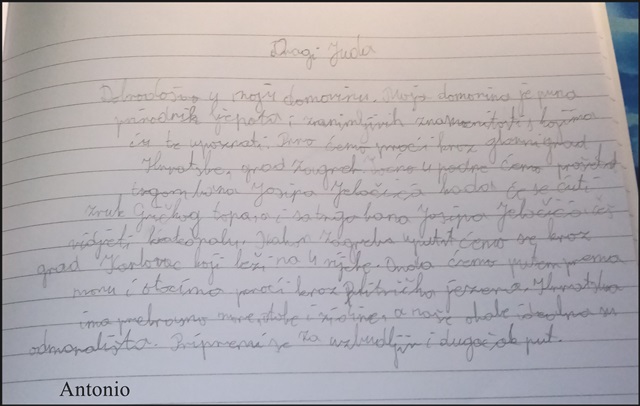 Dragi Juda
Dobrodošao u moju domovinu. Moja domovina je puna
prirodnih ljepota i zanimljivih znamenitosti s kojima
ću te upoznati. Prvo ćemo proći kroz glavni grad
Hrvatske, grad Zagreb. u podne ćemo prošetat
trgom bana Josipa Jelačića kada će se čuti
zvuk Gričkog topa, i s trga bana Josipa Jelačića ćeš
vidjeti katedralu. Nakon Zagreba uputit ćemo se kroz
grad Karlovac koji leži na 4 rijeke. Onda ćemo putem prema
moru i otocima proći kroz Plitvička jezera. Hrvatska
ima prekrasno more, otoke i a naše obale idealna su
odmarališta. Pripremi se za uzbudljiv i dugačak put.
Antonio